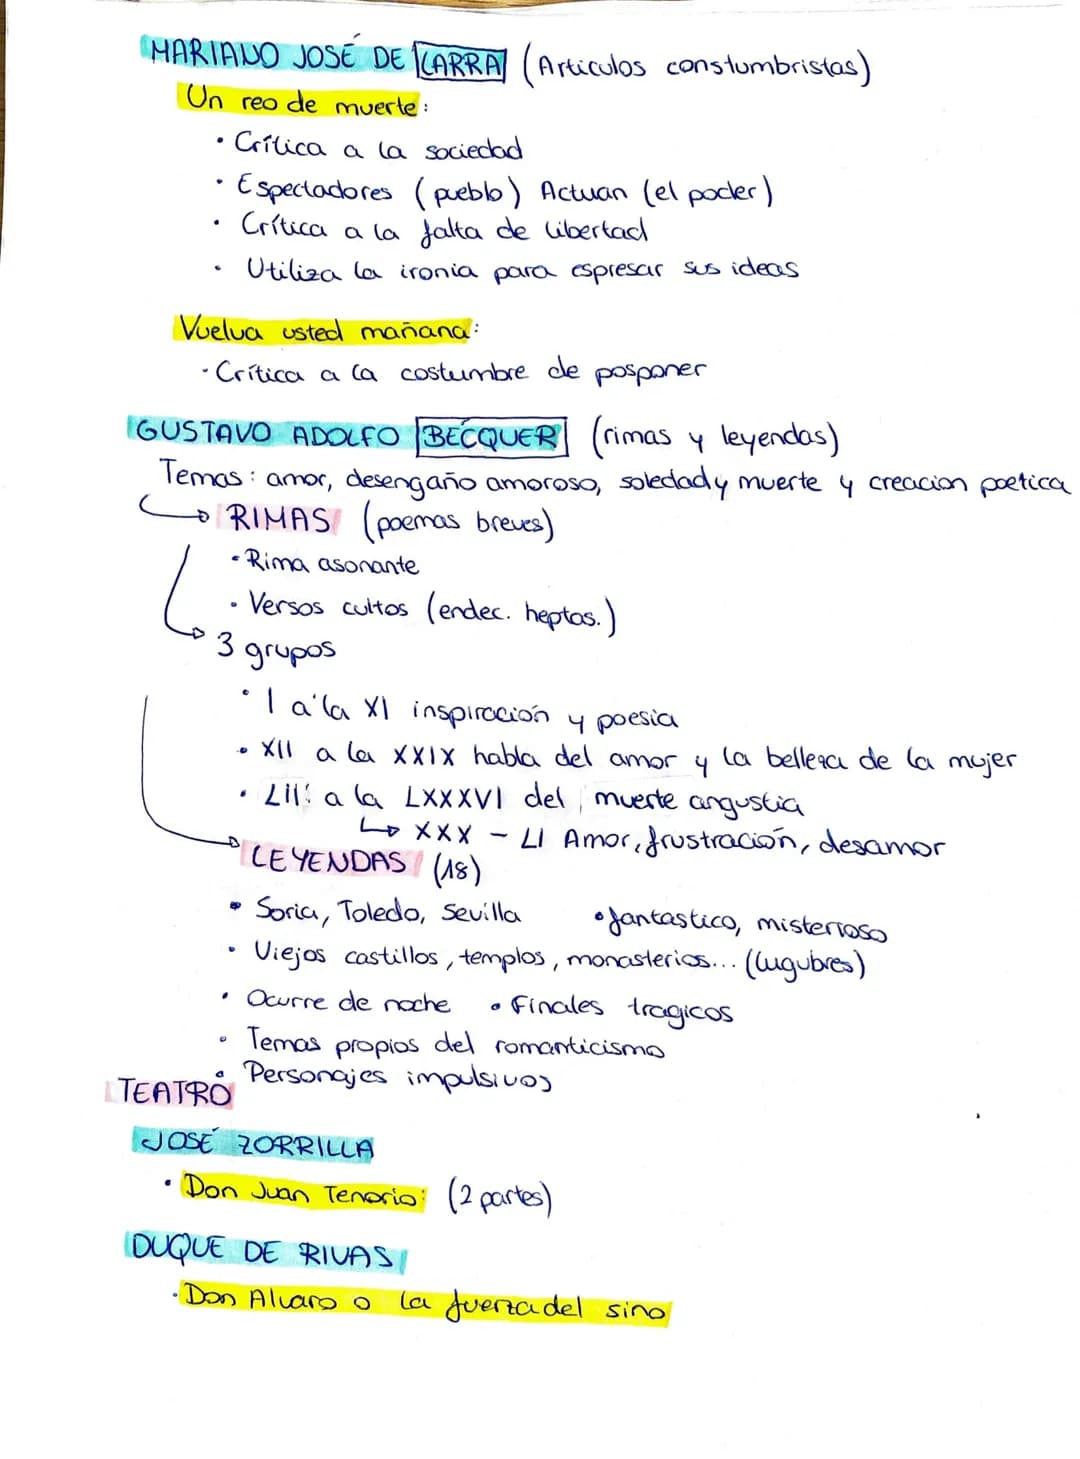 MARIANO JOSÉ DE LARRA (Articulos constumbristas)
Un reo de muerte:
• Crítica a la sociedad
• Espectadores (pueblo) Actuan (el poder)
• Crítica a la falta de libertad
• Utiliza la ironia para espresar sus ideas
Vuelva usted mañana:
• Crítica a la costumbre de posponer
GUSTAVO ADOLFO BÉCQUER (rimas y leyendas)
Temas: amor, desengaño amoroso, soledad y muerte y creacion poetica
→ RIMAS (poemas breves)
• Rima asonante
• Versos cultos (endec. heptas.)
→ 3 grupos
• I a la XI inspiración y poesia
• XII a la XXIX habla del amor y la belleza de la mujer
• LII: a la LXXXVI del muerte angustia
↳ XXX - LI Amor, frustración, desamor
→ LEYENDAS (18)
• Soria, Toledo, Sevilla • fantastico, misterioso
• Viejos castillos, templos, monasterios... (lugubres)
• Ocurre de noche • Finales tragicos
• Temas propios del romanticismo
• Personajes impulsivos
TEATRO
JOSÉ ZORRILLA
• Don Juan Tenorio: (2 partes)
DUQUE DE RIVAS
• Don Alvaro o la fuerza del sino